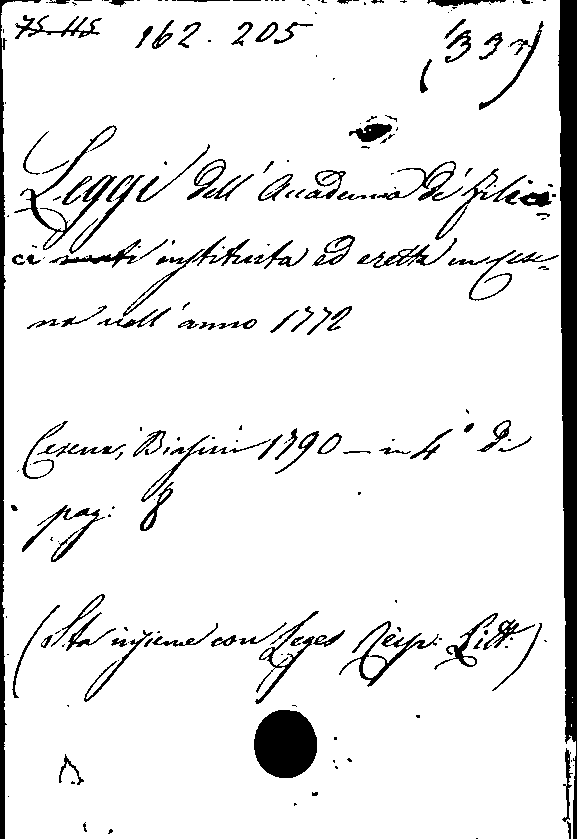 75-115 162. 205 (33r)
Leggi dell'Accademia de' Filici=
ci instituita ed eretta in Cese=
na nell'anno 1772
Cesena, Biasini 1790 — in 4° di
pag: 8
(Sta insieme con Leges Reip: Litt:)